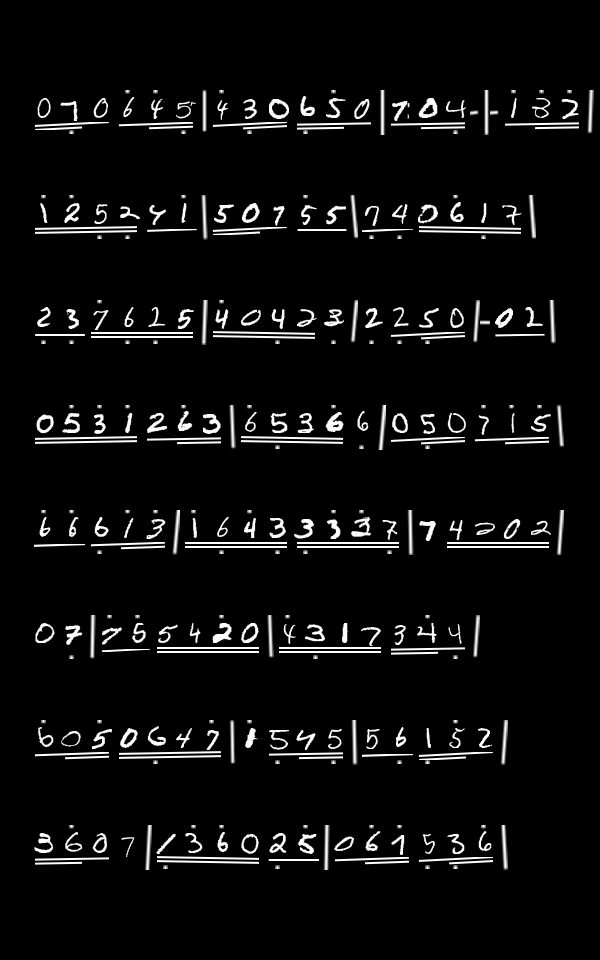 070645|430650|704-|-132
125241|50755|740617
237625|40423|2250|-02
0531263|65366|050715
66613|16433337|74202
07|755420|4317344
6050647|1545|56152
3607|136025|061536